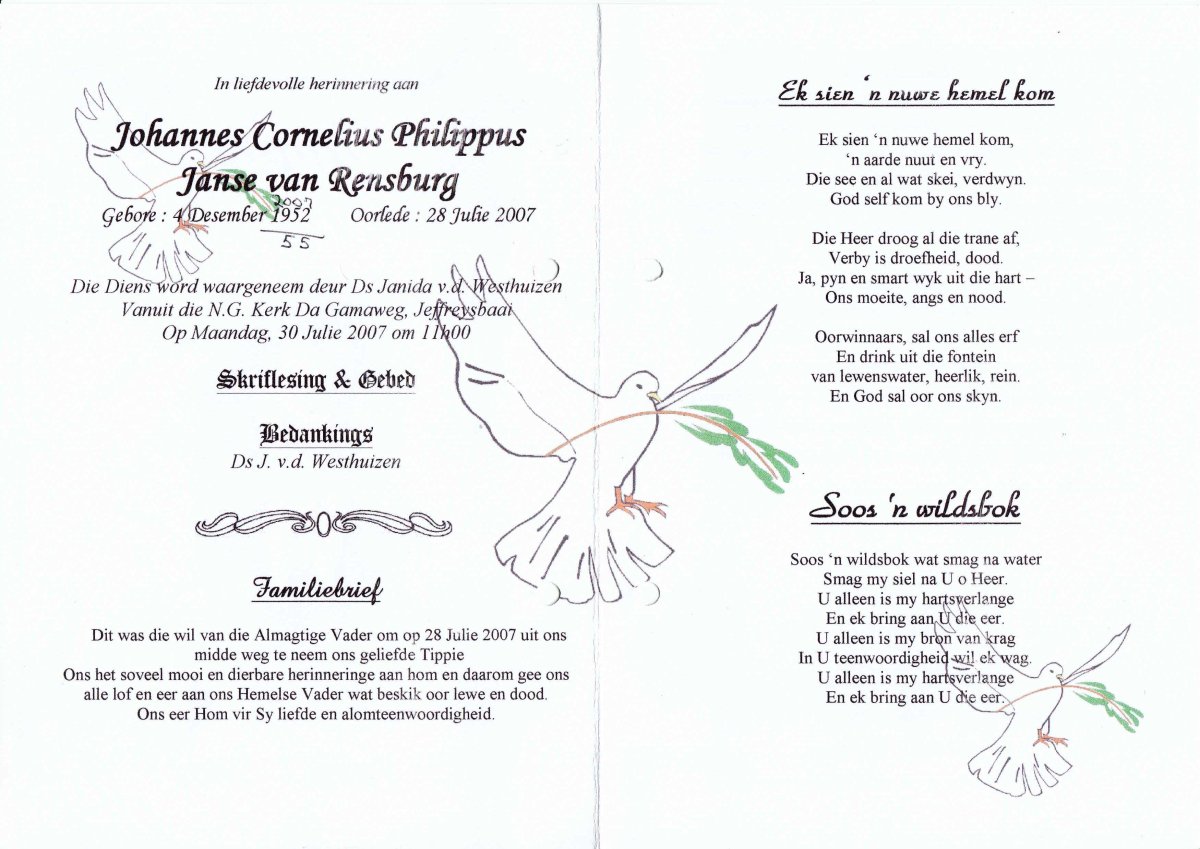 In liefdevolle herinnering aan
Johannes Cornelius Philippus
Janse van Rensburg
Gebore : 4 Desember 1952 Oorlede : 28 Julie 2007
2007
55
Die Diens word waargeneem deur Ds Janida v.d. Westhuizen
Vanuit die N.G. Kerk Da Gamaweg, Jeffreysbaai
Op Maandag, 30 Julie 2007 om 11h00
Skriflesing & Gebed
Bedankings
Ds J. v.d. Westhuizen
Familiebrief
Dit was die wil van die Almagtige Vader om op 28 Julie 2007 uit ons
midde weg te neem ons geliefde Tippie
Ons het soveel mooi en dierbare herinneringe aan hom en daarom gee ons
alle lof en eer aan ons Hemelse Vader wat beskik oor lewe en dood.
Ons eer Hom vir Sy liefde en alomteenwoordigheid.
Ek sien ‘n nuwe hemel kom
Ek sien ‘n nuwe hemel kom,
‘n aarde nuut en vry.
Die see en al wat skei, verdwyn.
God self kom by ons bly.
Die Heer droog al die trane af,
Verby is droefheid, dood.
Ja, pyn en smart wyk uit die hart –
Ons moeite, angs en nood.
Oorwinnaars, sal ons alles erf
En drink uit die fontein
van lewenswater, heerlik, rein.
En God sal oor ons skyn.
Soos 'n wildsbok
Soos ‘n wildsbok wat smag na water
Smag my siel na U o Heer.
U alleen is my hartsverlange
En ek bring aan U die eer.
U alleen is my bron van krag
In U teenwoordigheid wil ek wag.
U alleen is my hartsverlange
En ek bring aan U die eer.